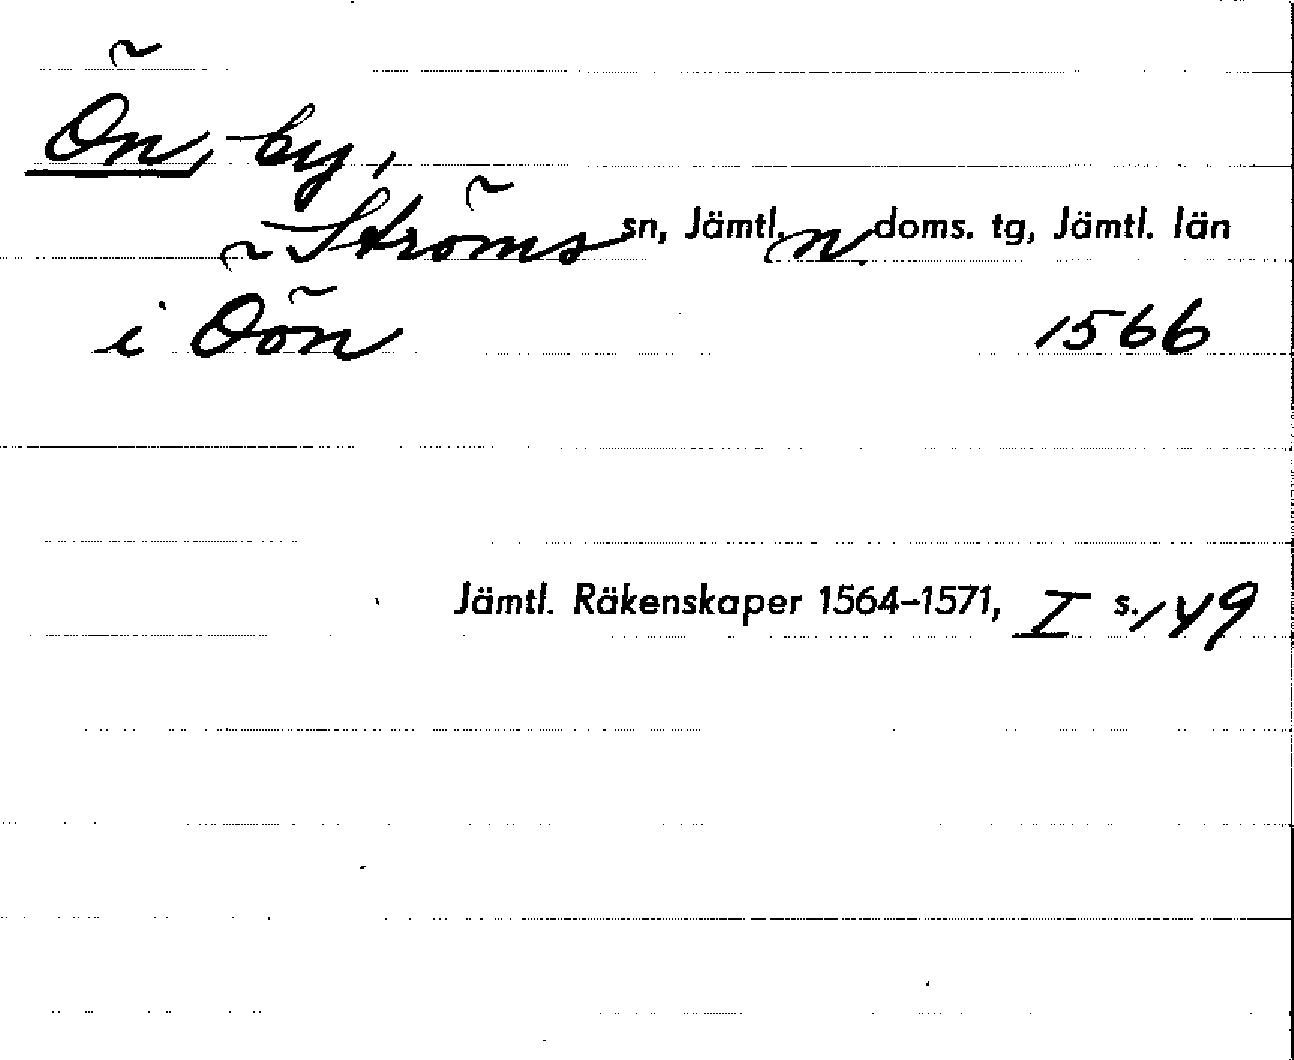 Ön, by,
Ströms sn, Jämtl. n. doms. tg, Jämtl. län
i Öön 1566
Jämtl. Räkenskaper 1564-1571, I s. 149